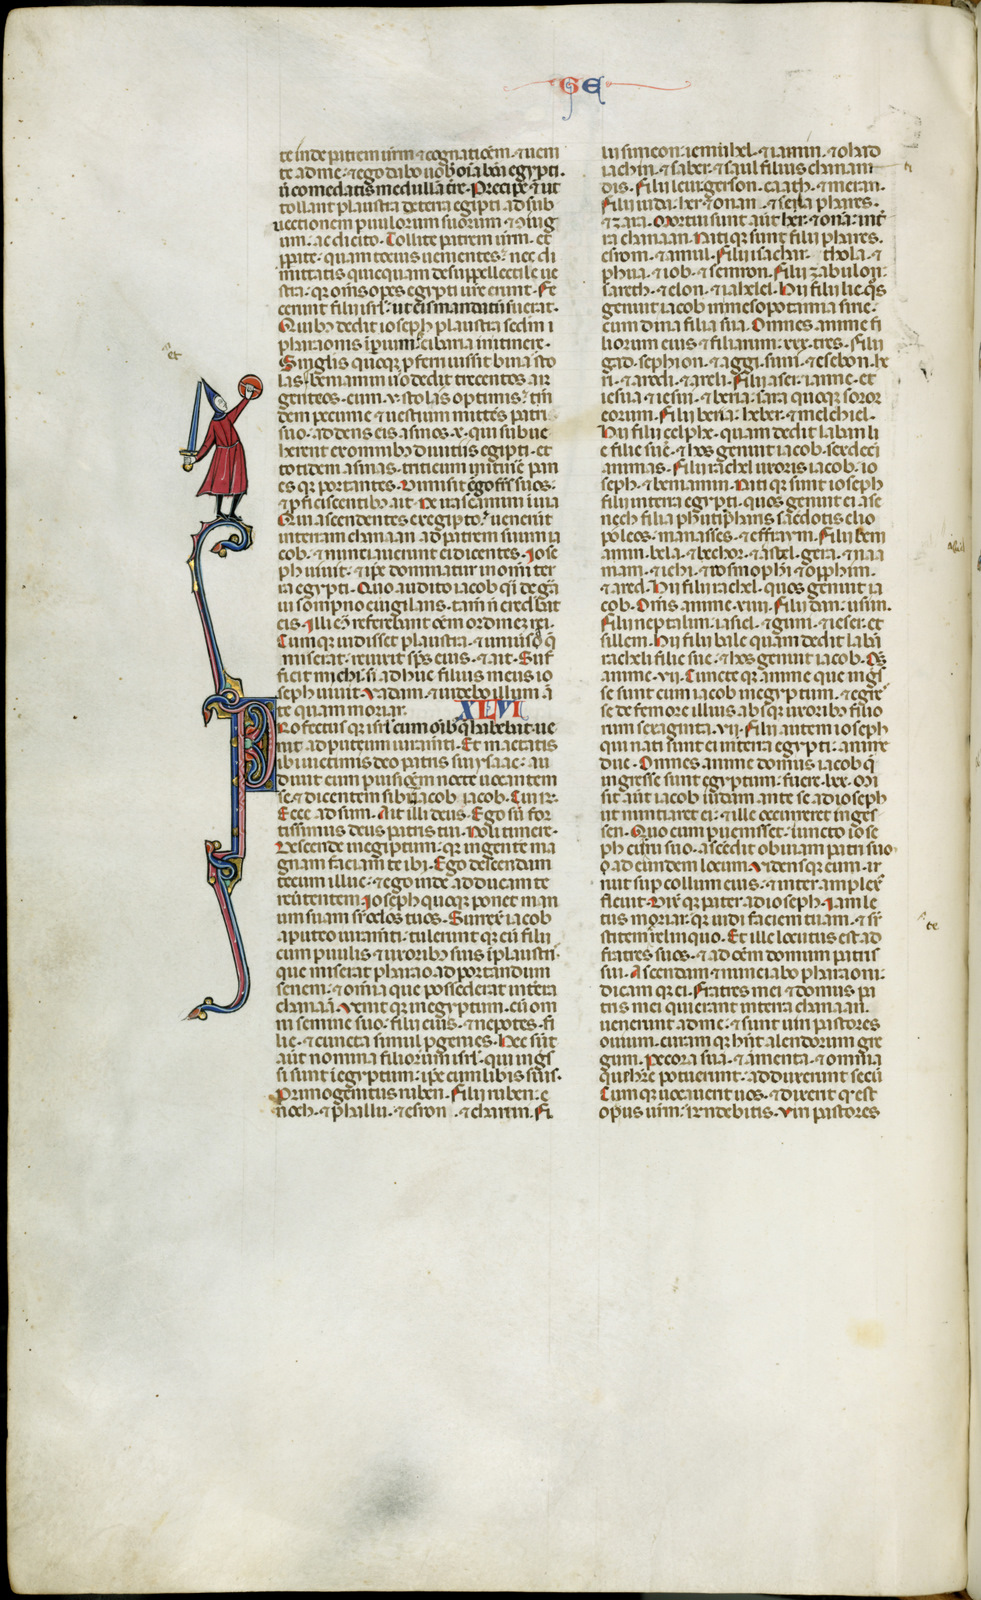 GE
te inde patrem ur̄m ⁊ cognatiōem. ⁊ ueni
te ad me. ⁊ ego dabo uob̄ oīa bōa egypti.
ut comedatis medullā tr̄e. Precipe ⁊ ut
tollant plaustra de terra egipti ad sub
uectionem paruulorum suorum ⁊ ꝯiug
um. ac dicito. Tollite patrem ur̄m. et
ꝓpate quamtotius uenientes. nec di
mittatis quicquam de supellectile ue
stra. qr̄ om̄s opes egypti ur̄e erunt. Fe
cerunt filii isrl̄. ut eis mandatū fuerat.
Quib; dedit ioseph plaustra secdm i
pharaonis īperium. ⁊ cibaria in itinere.
Singlis quoq; ꝓferri iussit binas sto
las. beniamin uo dedit trecentos ar
genteos. cum .v. stolas optimis. tn̄
dem pecunie ⁊ uestium mittēs patri
suo. addens eis asinos .x. qui subue
herent ex omnib; diuitiis egipti. et
totidem asinas. triticum in itīne ꝓ pan
es q; portantes. Dimisit ergo fr̄s suos.
⁊ ꝓficiscentib; ait. Ne irascamini ī uia
Qui ascendentes ex egipto. uenerūt
in terram chanaan ad patrem suum ia
cob. ⁊ nunciauerunt ei dicentes. Iose
ph uiuit. ⁊ ip̄e dominatur in om̄i ter
ra egypti. Quo audito iacob q̄i de gra
ui sompno euigilans. tam̄ n̄ credebat
eis. Illi eō referebant om̄em ordinē rei.
Cumque uidisset plaustra. ⁊ uniuersa q̄
miserat. reuixit sp̄s eius. ⁊ ait. Suf
ficit michi. si adhuc filius meus io
seph uiuit. Vadam. ⁊ uidebo illum ā
te quam moriar.
XLVI
Profectusq; isrl̄ cum oīb; q̄ habebat. ue
nit ad puteum iuramti. Et mactatis
ibi uictimis deo patris sui ysaac. au
diuit eum ꝑ uisiōem nocte uocantem
se. ⁊ dicentem sibi. iacob iacob. Cui r̄.
Ecce adsum. Ait illi deus. Ego sū for
tissimus deus patris tui. Noli timere.
Descende in egiptum. qr̄ in gente ma
gnam faciam te ibi. Ego descendam
tecum illuc. ⁊ ego inde adducam te
reūtentem. Ioseph quoq; ponet man
um suam sr̄ oclos tuos. Surrex̄ iacob
a puteo iuramti. tulerunt q; eū filii
cum paruulis ⁊ uxorib; suis ī plaustri.
que miserat pharao ad portandum
senem. ⁊ omnia que possederat in terra
chanaā. Venit q; in egyptum. cū om
ni semine suo. filii eius. ⁊ nepotes. fi
lie. ⁊ cuncta simul ꝓgenies. Hec sūt
aūt nomina filiorum isrl̄. qui ings
si sunt ī egyptum. ip̄e cum libis suis.
Primogenitus ruben. Filii ruben. e
noch. ⁊ phallu. ⁊ esron. ⁊ charmi. Fi
lii simeon. iemuhel. ⁊ iamin. ⁊ ohard
iachin. ⁊ saher. ⁊ saul filius chanani
dis. Filii leui. gerson. caath. ⁊ merari.
Filii iuda. her. ⁊ onan. ⁊ sela phares.
⁊ zara. Mortui sunt aūt her. ⁊ onā. in t̄
ra chanaan. Nati q; sunt filii phares.
esrom. ⁊ amul. Filii isachar. thola. ⁊
phua. ⁊ iob. ⁊ semron. Filii zabulon.
sareth. ⁊ elon. ⁊ iahelel. Hii filii lie. q̄s
genuit iacob in mesopotamia sirie.
cum dina filia sua. Omnes anime fi
liorum eius ⁊ filiarum. xxx. tres. Filii
gad. sephion. ⁊ aggi. suni. ⁊ esebon. he
ri. ⁊ arodi. ⁊ areli. Filii aser. iamne. et
iesua ⁊ iesui. ⁊ beria. sara quoq; soror
eorum. Filii beria. heber. ⁊ melchiel.
Hii filii celphe. quam dedit laban li
e filie sue. ⁊ hos genuit iacob. sexdeci
animas. Filii rachel uxoris iacob. io
seph. ⁊ beniamin. Nati q; sunt ioseph
filii in terra egypti. quos genuit ei ase
nech filia phutipharis sacdotis elio
poleos. manasses. ⁊ effraym. Filii beni
amin. bela. ⁊ bechor. ⁊ asbel. gera. ⁊ naa
mam. ⁊ ichi. ⁊ ros mophi ⁊ opphim.
⁊ ared. Hii filii rachel. quos genuit ia
cob. Om̄s anime .xiiii. Filii dan. usim.
Filii neptalim. iasiel. ⁊ guni. ⁊ ieser. et
sillem. Hii filii bale quam dedit labā
racheli filie sue. ⁊ hos genuit iacob. Om̄s
anime .vii. Cuncte q; anime que ingr̄
se sunt cum iacob in egyptum. ⁊ egre
se de femore illius absq; uxorib; filio
rum sexaginta .vi. Filii autem ioseph
qui nati sunt ei in terra egypti. anime
due. Omnes anime domus iacob q̄
ingresse sunt egyptum. fuere .lxx. Mi
sit aūt iacob iudam ante se ad ioseph
ut nuntiaret ei. ⁊ ille occurreret in ges
sen. Quo cum ꝑuenisset. iuncto iose
ph curru suo. ascedit obuiam patri suo
ad eundem locum. Vidensq; eum. ir
ruit sup collum eius. ⁊ inter amplex̄
fleuit. Dixit q; pater ad ioseph. Iam le
tus moriar. qr̄ uidi faciem tuam. ⁊ su
stitem relinquo. Et ille locutus est ad
fratres suos. ⁊ ad om̄em domum patris
sui. Ascendam ⁊ nunciabo pharaoni.
dicam q; ei. Fratres mei ⁊ domus pa
tris mei qui erant in terra chanaan.
uenerunt ad me. ⁊ sunt uiri pastores
ouium. curam q; hn̄t alendorum gre
gum. Pecora sua. ⁊ armenta. ⁊ omnia
que hr̄e potuerunt. adduxerunt secū
Cumq; uocauerit uos. ⁊ dixerit qd̄ est
opus ur̄m. r̄ndebitis. Viri pastores
et
te